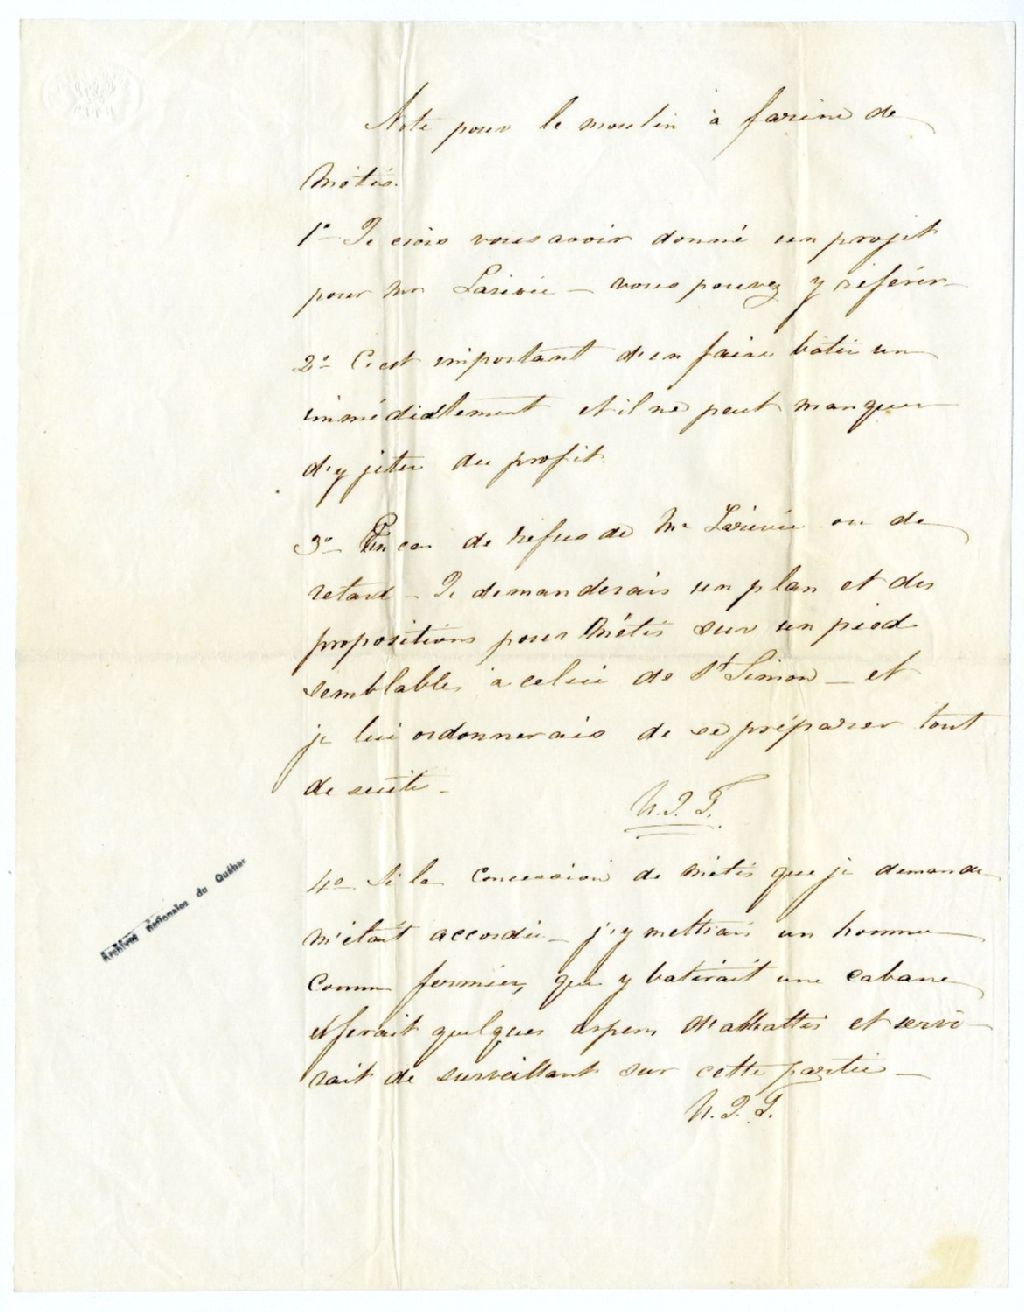 Note pour le moulin à farine de
Métis.
1° Je crois vous avoir donné un projet
pour Mr Larivée – vous pouvez y référer –
2° C'est important d'en faire bâtir un
immédiatement et il ne peut manquer
d'y jeter du profit.
3° En cas de refus de Mr Larivée ou de
retard – Je demanderais un plan et des
propositions pour Métis sur un pied
semblable, à celui de St Simon – et
je lui ordonnerais de se préparer tout
de suite –
4° Si la Concession de Métis que je demande
m'était accordée – j'y mettrais un homme
comme fermier, que y batirait une cabane
et ferait quelques arpens d'abattis et servi-
rait de surveillant sur cette partie –
Archives nationales du Québec